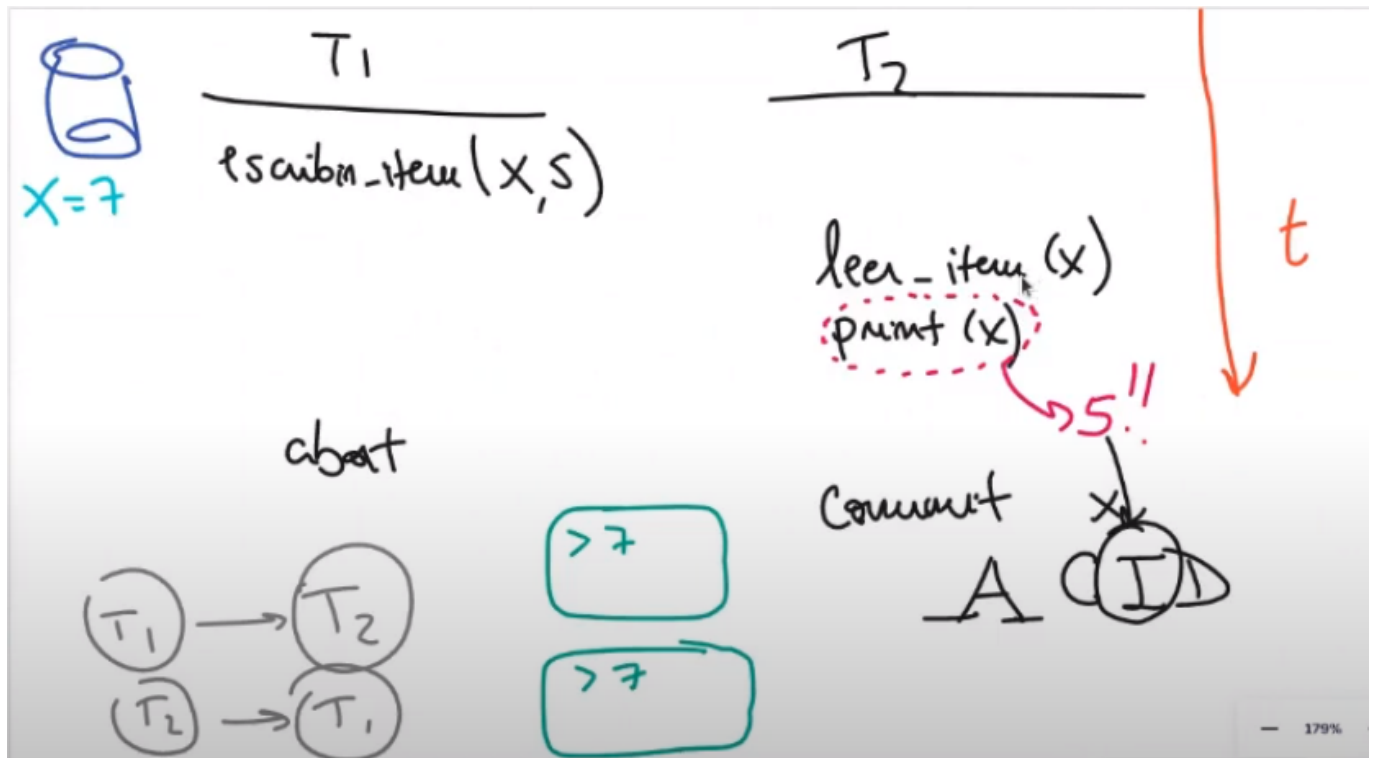 T1
T2
X=7
escribir_item(X,5)
t
leer_item (X)
print (X)
5!!
abort
Commit
X
> 7
A C I D
T1
T2
> 7
T2
T1
179%